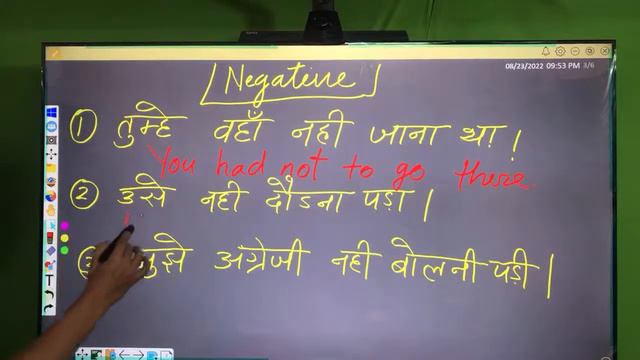 08/23/2022 09:53 PM 3/6
Negative
① तुम्हे वहाँ नही जाना था !
You had not to go there
② उसे नही दौडना पड़ा |
मुझे अंग्रेजी नही बोलनी पड़ी |